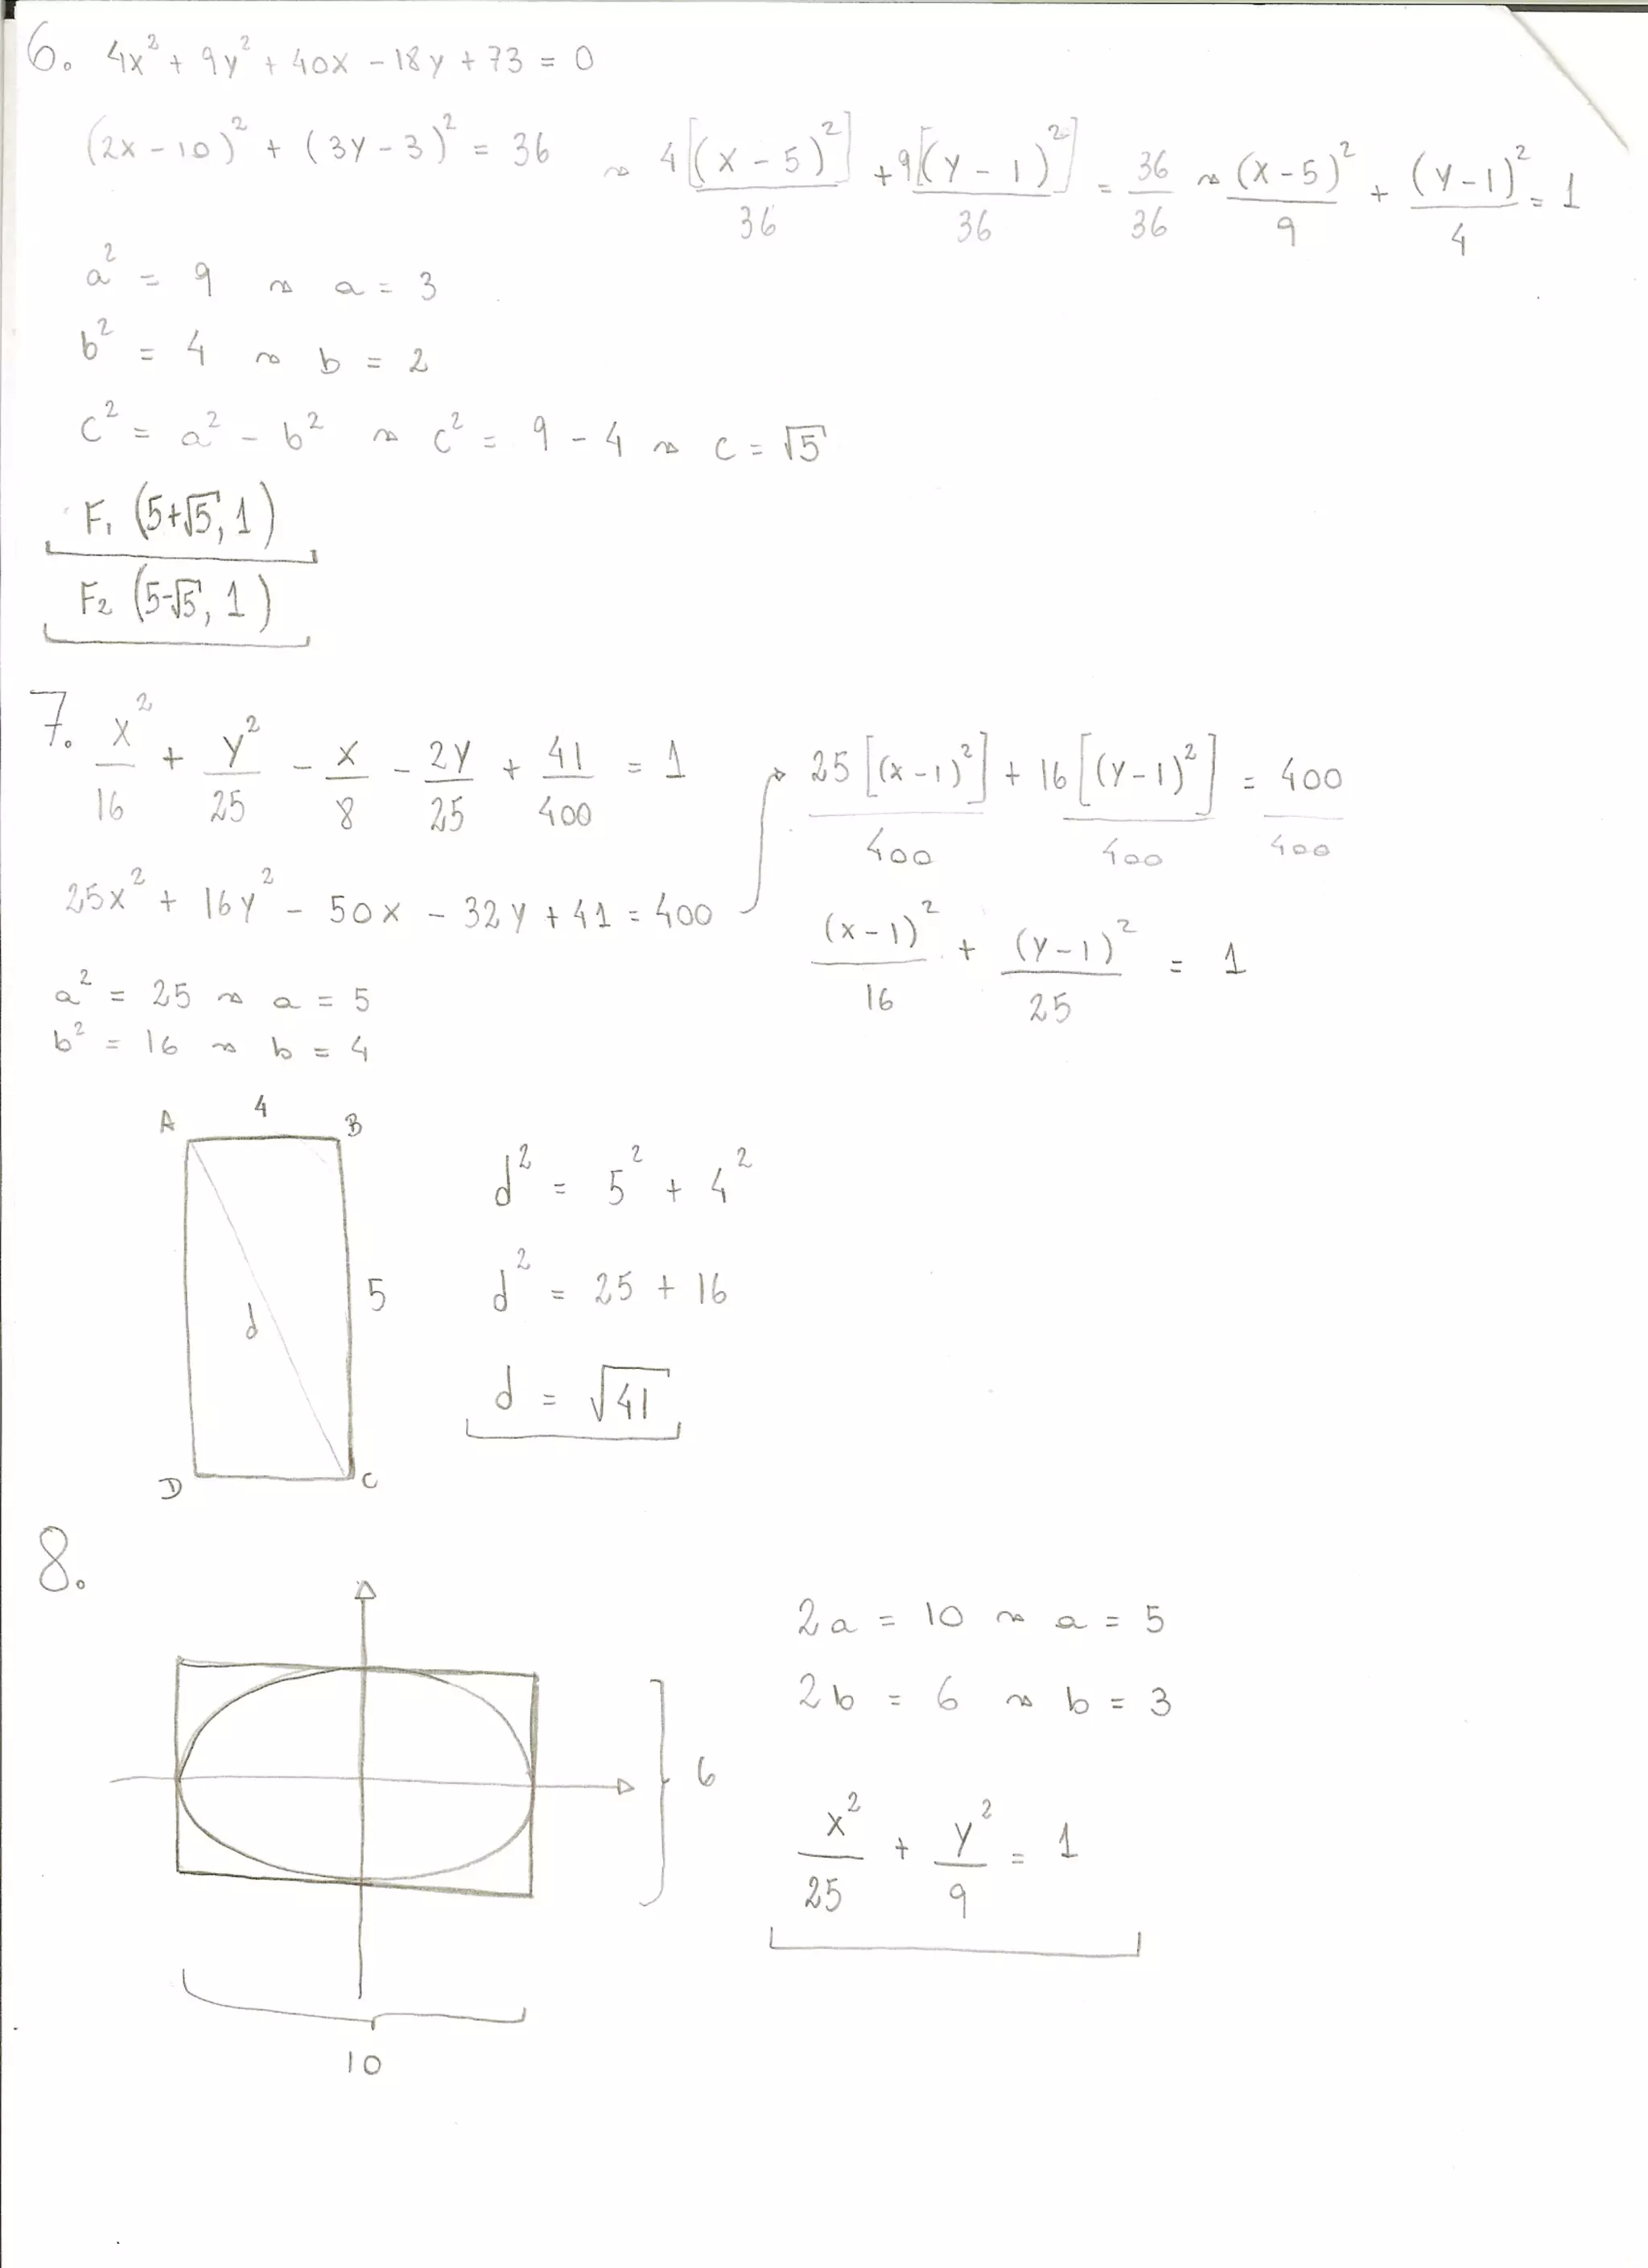 6. 4x² + 9y² + 40x - 18y + 73 = 0
(2x - 10)² + (3y - 3)² = 36 ⇝ 4[(x - 5)²]/36 + 9[(y - 1)²]/36 = 36/36 ⇝ (x - 5)²/9 + (y - 1)²/4 = 1
a² = 9 ⇝ a = 3
b² = 4 ⇝ b = 2
c² = a² - b² ⇝ c² = 9 - 4 ⇝ c = √5
F₁ (5+√5, 1)
F₂ (5-√5, 1)
7. x²/16 + y²/25 - x/8 - 2y/25 + 41/400 = 1
25x² + 16y² - 50x - 32y + 41 = 400
25[(x - 1)²]/400 + 16[(y - 1)²]/400 = 400/400
(x - 1)²/16 + (y - 1)²/25 = 1
a² = 25 ⇝ a = 5
b² = 16 ⇝ b = 4
4
A B
5
d
D C
d² = 5² + 4²
d² = 25 + 16
d = √41
8.
6
10
2a = 10 ⇝ a = 5
2b = 6 ⇝ b = 3
x²/25 + y²/9 = 1